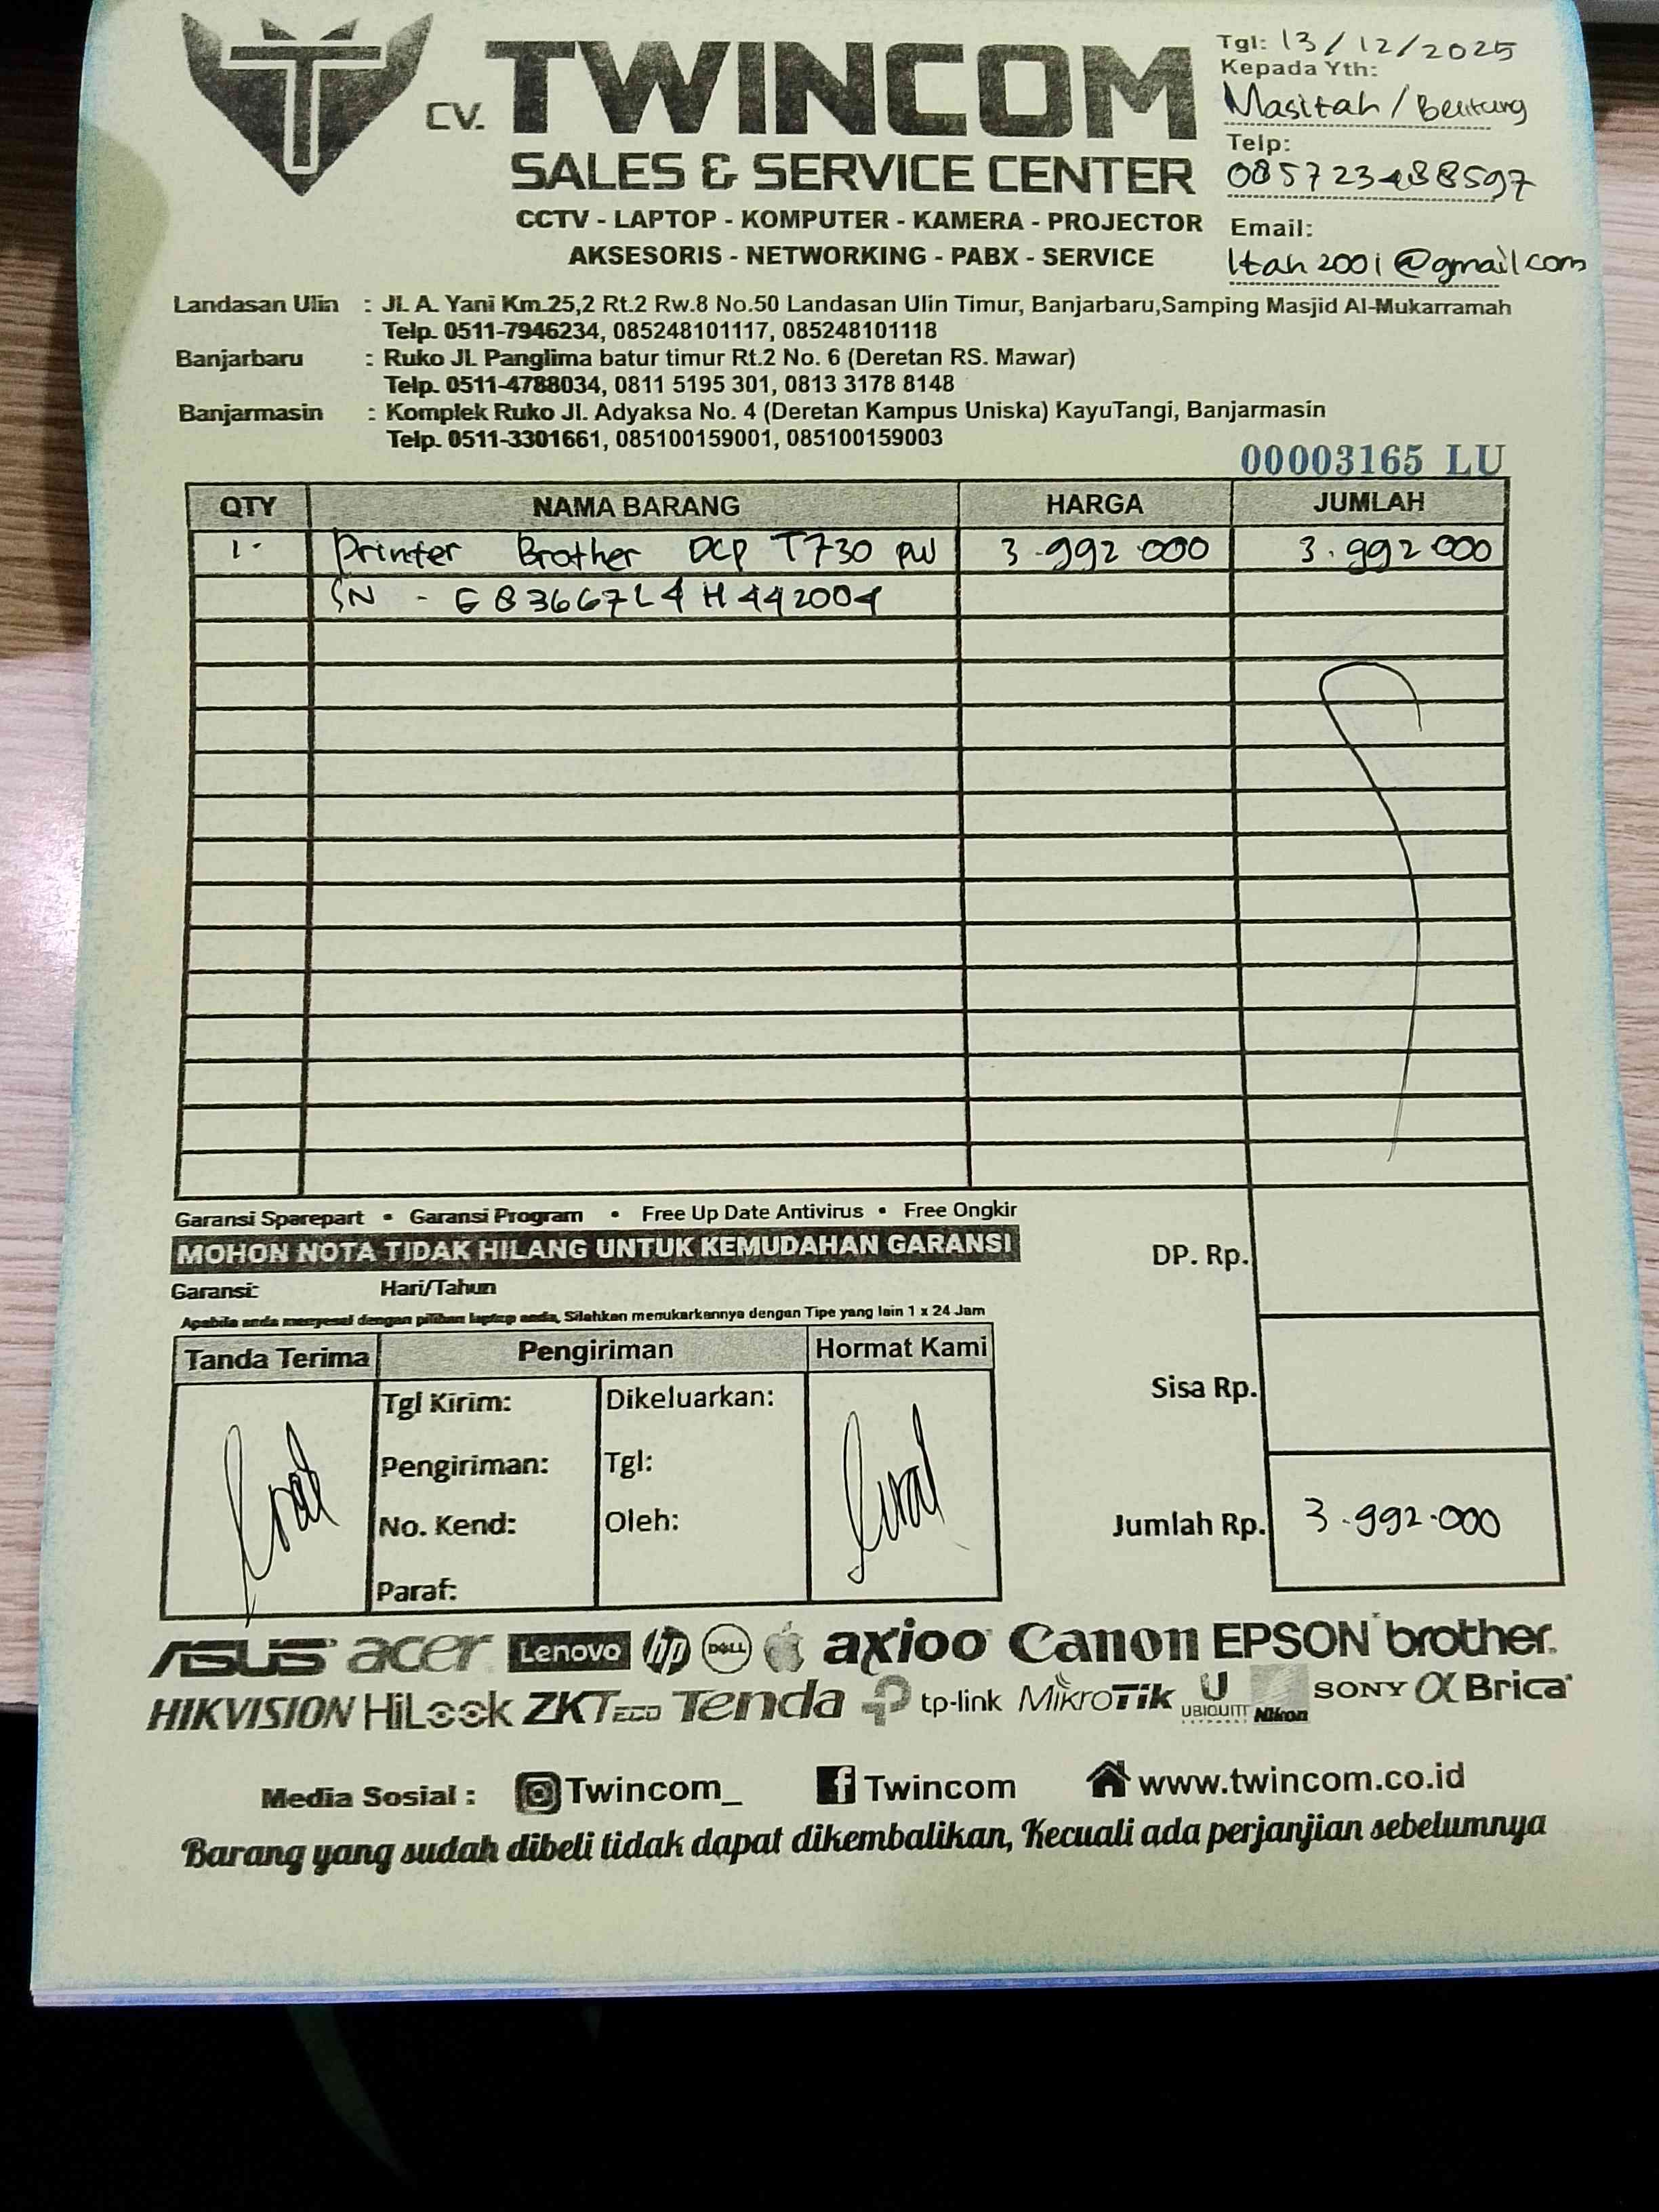 Tgl: 13/12/2025
Kepada Yth:
Masitah / Bentung
Telp:
085723488597
Email:
Itah2001@gmail.com
CV. TWINCOM
SALES & SERVICE CENTER
CCTV - LAPTOP - KOMPUTER - KAMERA - PROJECTOR
AKSESORIS - NETWORKING - PABX - SERVICE
Landasan Ulin : Jl. A. Yani Km.25,2 Rt.2 Rw.8 No.50 Landasan Ulin Timur, Banjarbaru,Samping Masjid Al-Mukarramah
Telp. 0511-7946234, 085248101117, 085248101118
Banjarbaru : Ruko Jl. Panglima batur timur Rt.2 No. 6 (Deretan RS. Mawar)
Telp. 0511-4788034, 0811 5195 301, 0813 3178 8148
Banjarmasin : Komplek Ruko Jl. Adyaksa No. 4 (Deretan Kampus Uniska) KayuTangi, Banjarmasin
Telp. 0511-3301661, 085100159001, 085100159003
00003165 LU
QTY NAMA BARANG HARGA JUMLAH
1. Printer Brother DCP T730 DW 3.992.000 3.992.000
SN - E83667L4H442004
Garansi Sparepart • Garansi Program • Free Up Date Antivirus • Free Ongkir
MOHON NOTA TIDAK HILANG UNTUK KEMUDAHAN GARANSI
Garansi: Hari/Tahun
Apabila anda menyesal dengan pilihan laptop anda, Silahkan menukarkannya dengan Tipe yang lain 1 x 24 Jam
DP. Rp.
Sisa Rp.
Jumlah Rp. 3.992.000
Tanda Terima Pengiriman Hormat Kami
Tgl Kirim: Dikeluarkan:
Pengiriman: Tgl:
No. Kend: Oleh:
Paraf:
ASUS acer Lenovo hp DELL axioo Canon EPSON brother
HIKVISION HiLook ZKTECO Tenda tp-link MikroTik U UBIQUITI Nikon SONY α Brica
Media Sosial : Twincom_ Twincom www.twincom.co.id
Barang yang sudah dibeli tidak dapat dikembalikan, Kecuali ada perjanjian sebelumnya